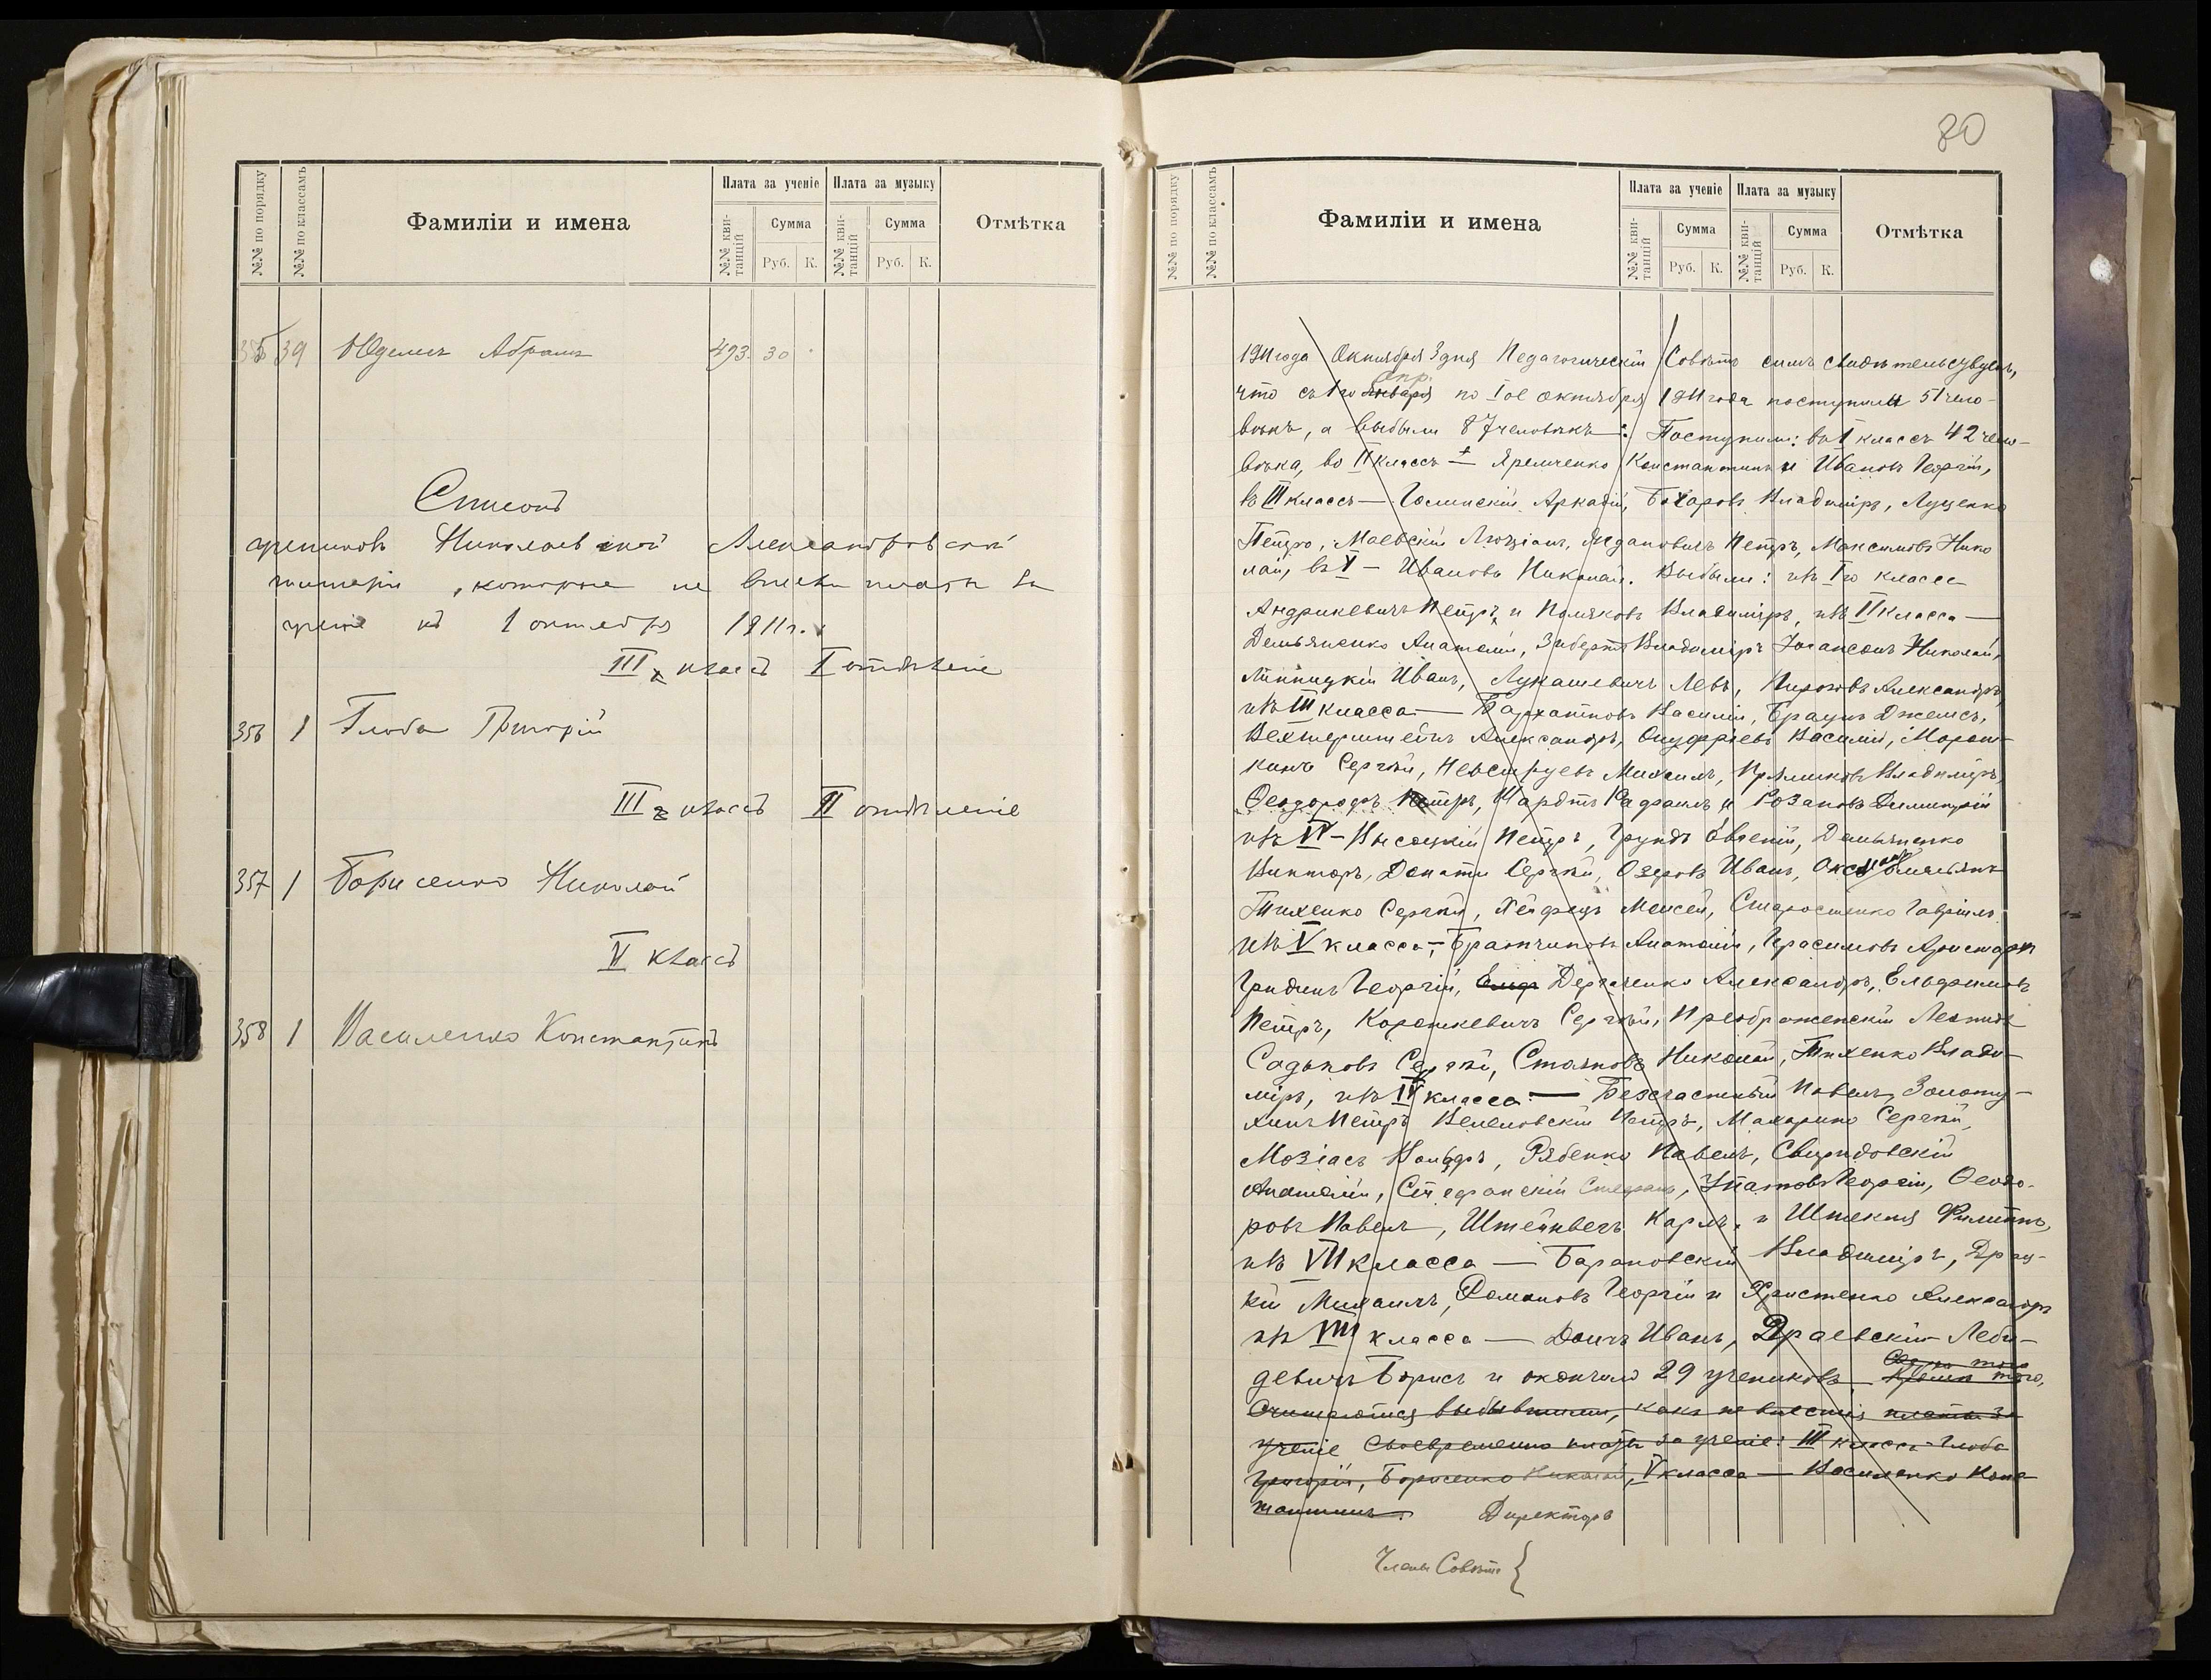 №№ по порядку
№№ по классамъ
Фамиліи и имена
Плата за ученіе
Плата за музыку
№№ кви-
танцій
Сумма
Руб. К.
№№ кви-
танцій
Сумма
Руб. К.
Отмѣтка
355 39 Юделисъ Абрамъ 493 30
Списокъ
учениковъ Николаевской Александровской
гимназіи, которые не внесли платы за
ученіе къ 1 октября 1911 г.
III классъ I отдѣленіе
356 1 Глоба Григорій
III классъ II отдѣленіе
357 1 Борисенко Николай
V классъ
358 1 Василенко Константинъ
80
№№ по порядку
№№ по классамъ
Фамиліи и имена
Плата за ученіе
Плата за музыку
№№ кви-
танцій
Сумма
Руб. К.
№№ кви-
танцій
Сумма
Руб. К.
Отмѣтка
1911 года Октября 3 дня Педагогическій Совѣтъ симъ свидѣтельствуетъ,
апр.
что съ 1го января по 1ое октября 1911 года поступили 51 чело-
вѣкъ, а выбыли 87 человѣкъ: Поступили: въ I классъ 42 чело-
вѣка, во II классъ — Яременко Константинъ и Ивановъ Георгій,
въ III классъ — Аркадій, Бочаровъ Владиміръ, Луценко
Петръ, Маевскій Люціанъ, Петръ, Максимовъ Нико
лай, въ V — Ивановъ Николай. Выбыли: изъ Iго класса
Андрикевичъ Петръ и Поляковъ Владиміръ, изъ II класса —
Демьяненко Анатолій, Зибертъ Владиміръ Іогансонъ Николай,
Липницкій Иванъ, Лукашевичъ Левъ, Пироговъ Александръ,
изъ III класса — Бархатновъ Василій, Браунъ Джемсъ,
Вехтерштейнъ Александръ, Онуфріевъ Василій, Морош-
кинъ Сергѣй, Невструевъ Михаилъ, Прямиковъ Владиміръ,
Ѳеодоровъ Петръ, Чардтъ Рафаилъ и Розановъ Димитрій
изъ IV — Высоцкій Петръ, Грундъ Евгеній, Демьяненко
Викторъ, Донати Сергѣй, Озеровъ Иванъ, Емельянъ
Тихенко Сергѣй, Хейфецъ Моисей, Старостенко Гавріилъ
изъ V класса — Братчиковъ Анатолій, Герасимовъ Аристархъ
Гридинъ Георгій, Дергаченко Александръ, Елевфимовъ
Петръ, Корошкевичъ Сергѣй, Преображенскій Леонидъ
Садыковъ Сергѣй, Стояновъ Николай, Тихенко Влади-
міръ, изъ класса — Безсчастный Павелъ, Золоту-
хинъ Петръ Велеловскій Петръ, Макаренко Сергѣй,
Мозіасъ Рябенко Павелъ, Свиридовскій
Анатолій, Стефанскій Стефанъ, Упатовъ Георгій, Ѳеодо-
ровъ Павелъ, Штейнвегъ Карлъ и Филиппъ,
изъ VII класса — Барановскій Владиміръ, Драц-
кій Михаилъ, Романовъ Георгій и Христенко Александръ
изъ VIII класса — Доичъ Иванъ, Драевскій Леби-
девичъ Борисъ и окончило 29 учениковъ. Кромѣ того,
Считаются выбывшими, какъ не внесшіе платы за
ученіе своевременно платы за ученіе: III класса Глоба
Григорій, Борисенко Николай, V класса — Василенко Конс
тантинъ. Директоръ
Члены Совѣта {